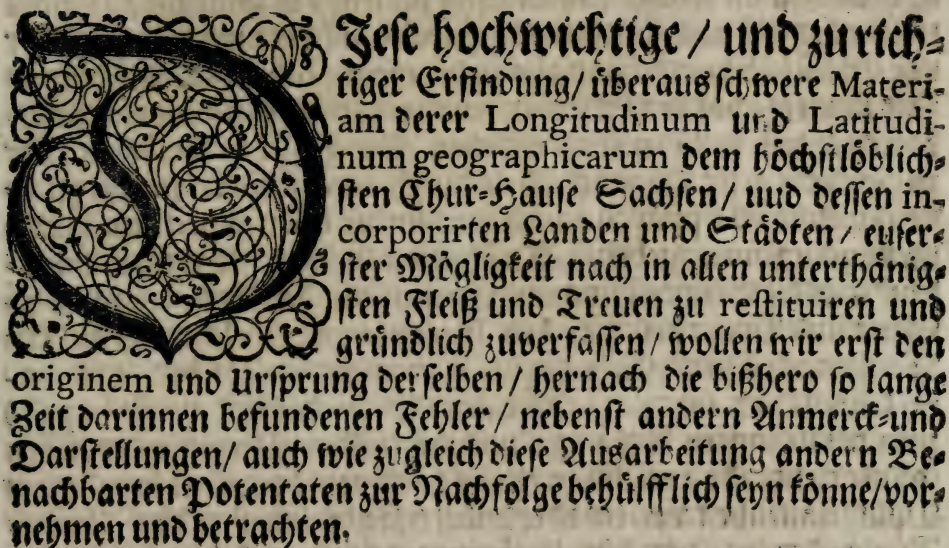 DJese hochwichtige / und zu rich⸗
tiger Erfindung/ überaus schwere Materi-
am derer Longitudinum und Latitudi-
num geographicarum dem höchstlöblich⸗
sten Chur⸗Hause Sachsen / uud dessen in-
corporirten Landen und Städten / euser⸗
ster Mögligkeit nach in allen unterthänig⸗
sten Fleiß und Treuen zu restituiren und
gründlich zuverfassen / wollen wir erst den
originem und Ursprung derselben / hernach die bißhero so lange
Zeit darinnen befundenen Fehler / nebenst andern Anmerck⸗und
Darstellungen/ auch wie zugleich diese Ausarbeitung andern Be⸗
nachbarten Potentaten zur Nachfolge behülfflich seyn könne/vor⸗
nehmen und betrachten.